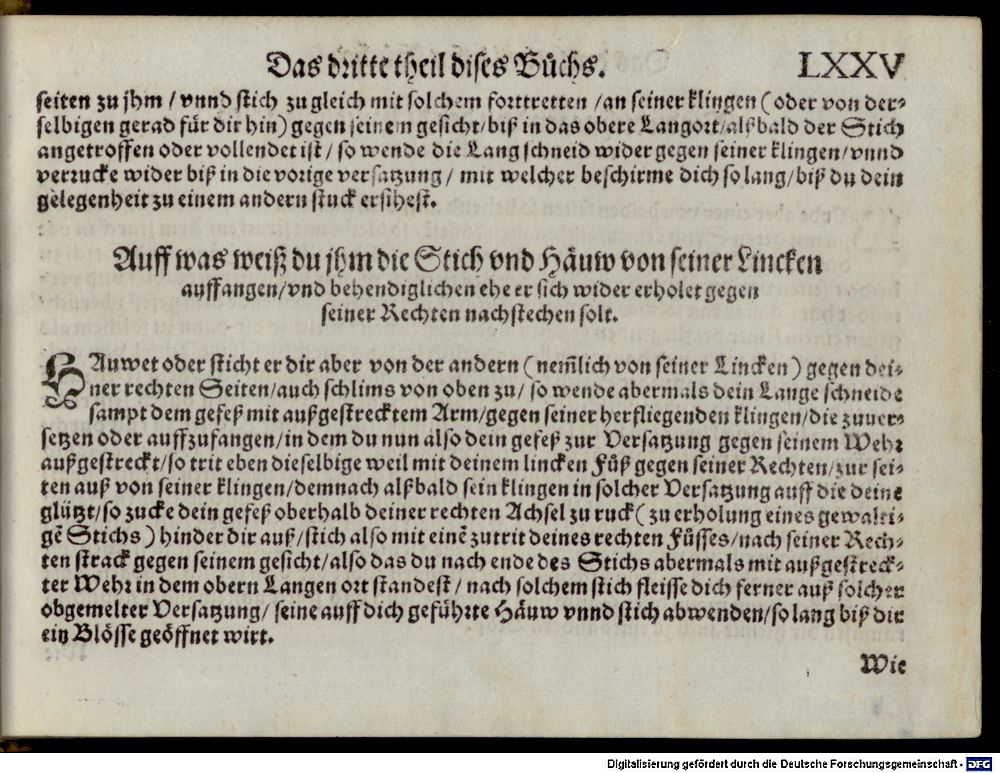 Das dritte theil dises Bůchs. LXXV
seiten zu jhm / vnnd stich zu gleich mit solchem forttretten / an seiner klingen ( oder von der⸗
selbigen gerad für dir hin ) gegen seinem gesicht / biß in das obere Langort / alßbald der Stich
angetroffen oder vollendet ist / so wende die Lang schneid wider gegen seiner klingen / vnnd
verzucke wider biß in die vorige versatzung / mit welcher beschirme dich so lang / biß du dein
gelegenheit zu einem andern stuck ersihest.
Auff was weiß du jhm die Stich vnd Häuw von seiner Lincken
auffangen / vnd behendiglichen ehe er sich wider erholet gegen
seiner Rechten nachstechen solt.
HAuwet oder sticht er dir aber von der andern ( nem̃lich von seiner Lincken ) gegen dei⸗
ner rechten Seiten / auch schlims von oben zu / so wende abermals dein Lange schneide
sampt dem gefeß mit außgestrecktem Arm / gegen seiner herfliegenden klingen / die zuuer⸗
setzen oder auffzufangen / in dem du nun also dein gefeß zur Versatzung gegen seinem Wehr
außgestreckt / so trit eben dieselbige weil mit deinem lincken Fůß gegen seiner Rechten / zur sei⸗
ten auß von seiner klingen / demnach alßbald sein klingen in solcher Versatzung auff die deine
glützt / so zucke dein gefeß oberhalb deiner rechten Achsel zu ruck ( zu erholung eines gewalti⸗
gẽ Stichs ) hinder dir auß / stich also mit einẽ zutrit deines rechten Fůsses / nach seiner Rech⸗
ten strack gegen seinem gesicht / also das du nach ende des Stichs abermals mit außgestreck⸗
ter Wehr in dem obern Langen ort standest / nach solchem stich fleisse dich ferner auß solcher
obgemelter Versatzung / seine auff dich geführte Häuw vnnd stich abwenden / so lang biß dir
ein Blösse geöffnet wirt.
Wie
Digitalisierung gefördert durch die Deutsche Forschungsgemeinschaft - DFG